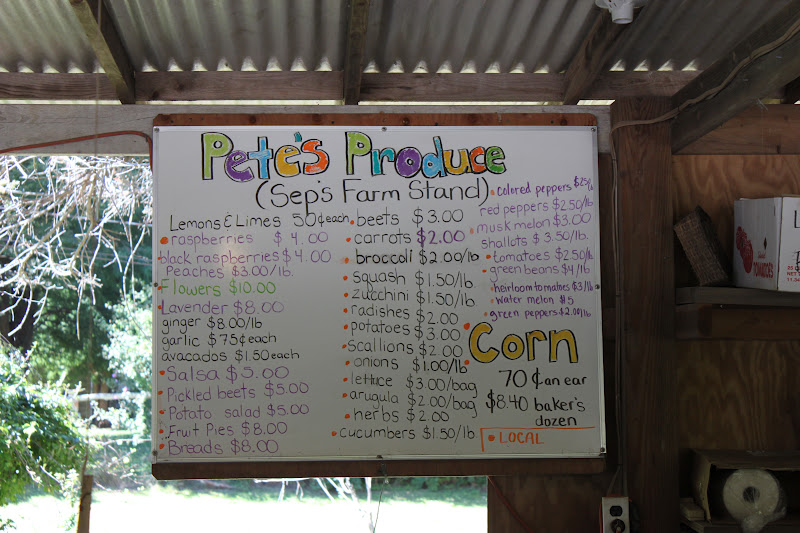 Pete's Produce
(Sep's Farm Stand)
Lemons & Limes 50¢ each
raspberries $4.00
black raspberries $4.00
Peaches $3.00/lb.
Flowers $10.00
Lavender $8.00
ginger $8.00/lb
garlic $.75¢ each
avacados $1.50 each
Salsa $5.00
Pickled beets $5.00
Potato salad $5.00
Fruit Pies $8.00
Breads $8.00
beets $3.00
carrots $2.00
broccoli $2.00/lb
squash $1.50/lb.
zucchini $1.50/lb.
radishes $2.00
potatoes $3.00
scallions $2.00
onions $1.00/lb
lettuce $3.00/bag
arugula $2.00/bag
herbs $2.00
cucumbers $1.50/lb
colored peppers
red peppers $2.50/lb
musk melon $3.00
shallots $3.50/lb.
tomatoes $2.50/lb
green beans $4/lb
heirloom tomatoes $3/lb
water melon $5
green peppers $2.00/lb
Corn
70¢ an ear
$8.40 baker's
dozen
LOCAL
TOMATOES